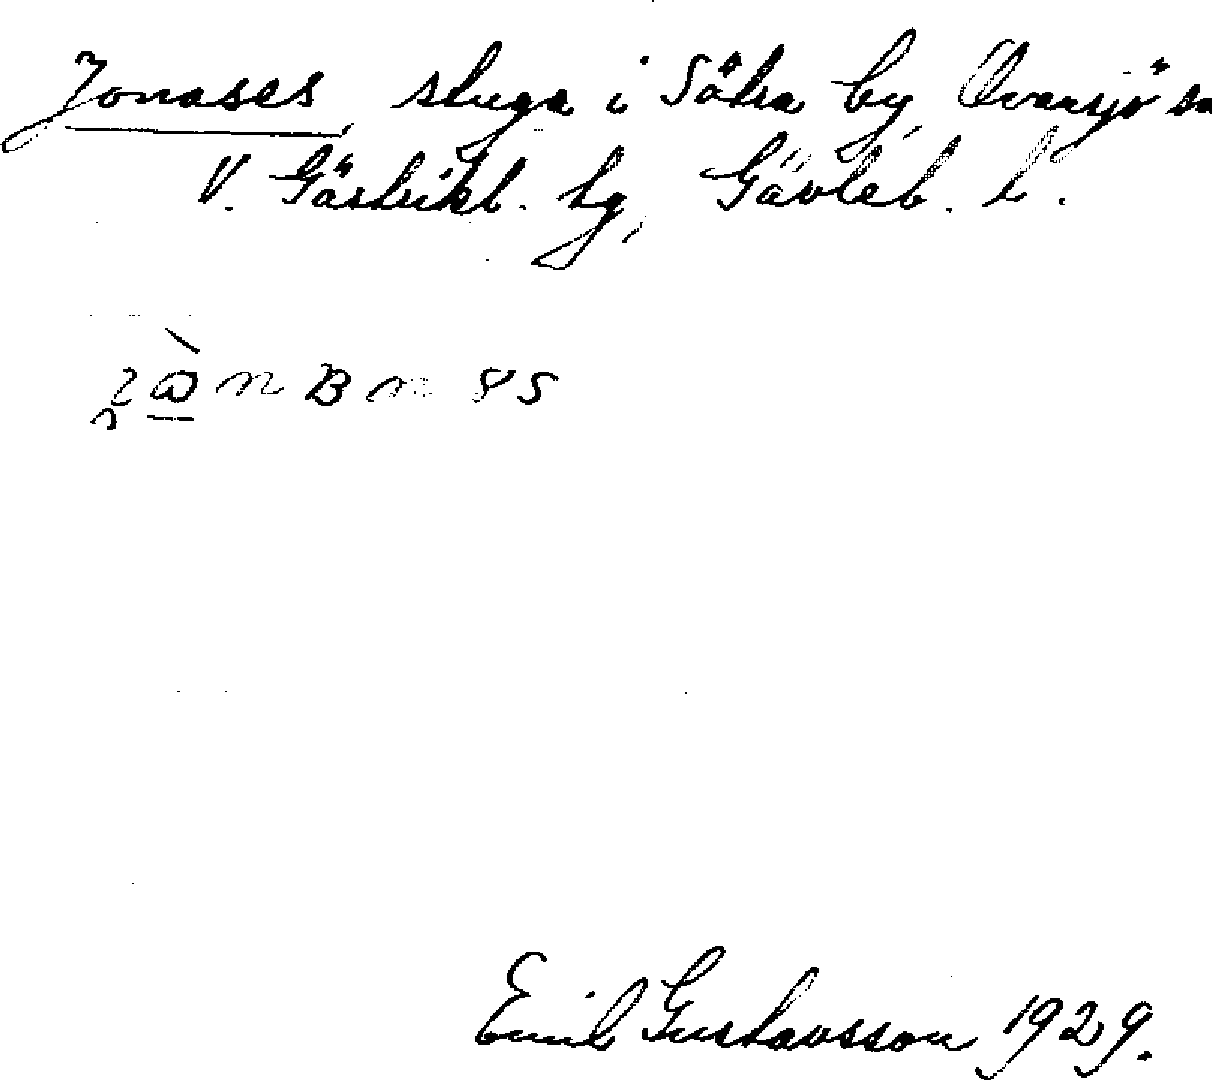 Jonases stuga i Sätra by, Ovansjö sn
V. Gästrikl. tg, Gävleb. l.
Emil Gustavsson 1929.